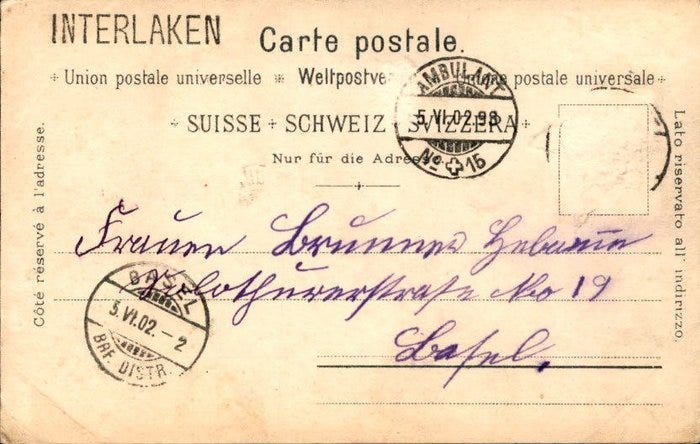 INTERLAKEN
Carte postale.
Union postale universelle Weltpostve postale universale
SUISSE + SCHWEIZ SVIZZERA
Nur für die Adresse
AMBULANT
5.VI.02.98
No 15
Côté réservé à l'adresse.
Lato riservato all' indirizzo.
Frauen Brunner Hebamme
Solothurerstraße No 19
Basel.
BASEL
5.VI.02.-2
BRF. DISTR.